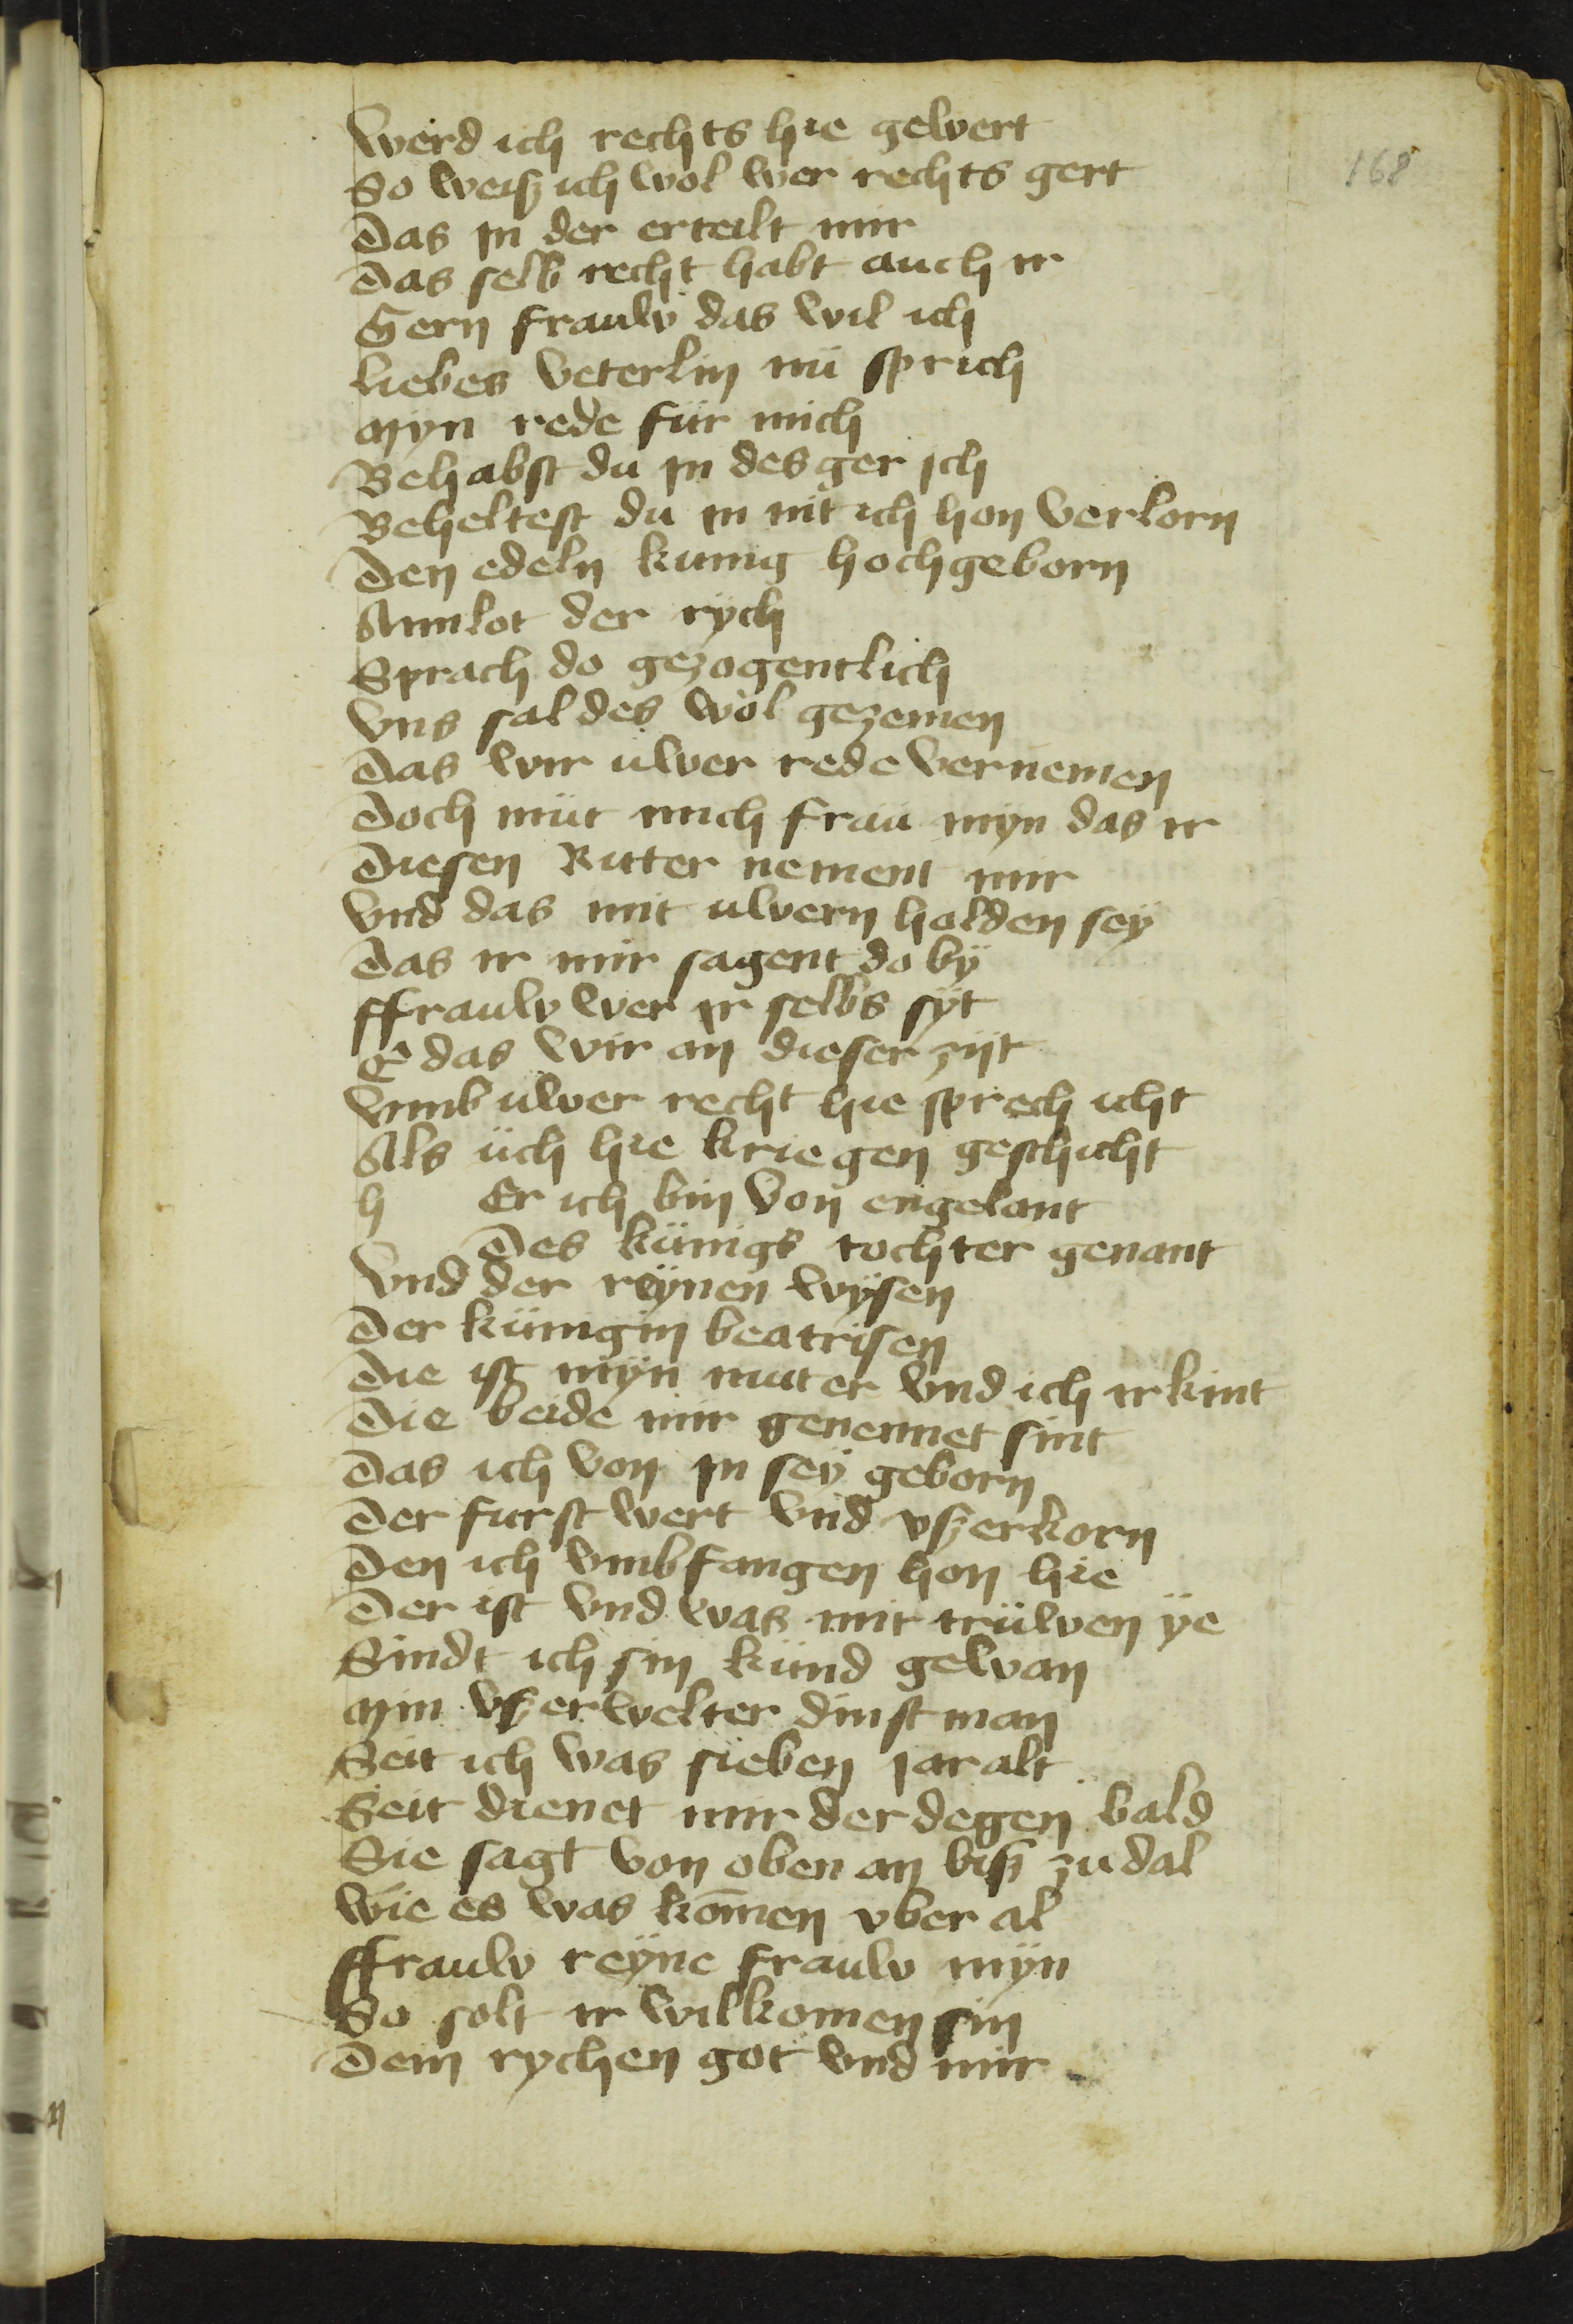 168
Werd ich rechts hie gewert
So weiß ich wol wer rechts gert
Das jn der erteilt mir
Das selb recht habt auch ir
Gern frauw das wil ich
Liebes veterlin nü sprich
Myn rede für mich
Behabst du jn des ger jch
Beheltest du in nit ich hon verlorn
Den edeln kunig hochgeborn
Amlot der rych
Sprach do gezogentlich
Vns sal des wol gezemen
Das wir uwer rede vernemen
Doch müt mich frau myn das ir
Diesen Ritter nement mir
Vnd das mit uwern holden sey
Das ir mir sagent do bÿ
ffrauw wer jr selbs sÿt
E das wir an dieser zijt
Vmb uwer recht hie sprech icht
Als üch hie kriegen geschicht
h Er ich bin von engelant
Des künigs tochter genant
Vnd der reÿnen wÿsen
Der künigin beatrisen
Die ist mÿn muter vnd ich ir kint
Die beide mir genennet sint
Das ich von jn seÿ geborn
Der furst wert vnd vßerkorn
Den ich vmbfangen hon hie
Der ist vnd was mit trüwen ÿe
Sindt ich sin künd gewan
Min vßerwelter dinstman
Seit ich was sieben jar alt
Seit dienet mir der degen bald
Sie sagt von oben an biß zu dal
Wie es was kom̄en vber al
ffrauw reÿne frauw mÿn
So solt ir wilkomen sin
Dem rychen got vnd mir